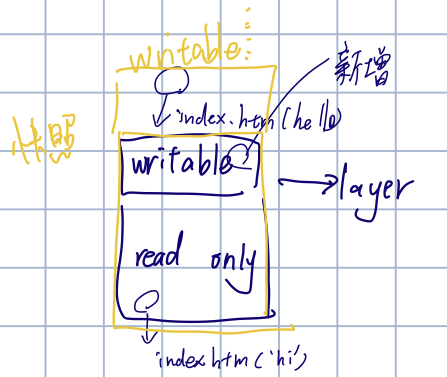 writable
新增
index.htm(hello)
快照
writable
layer
read only
index.htm('hi')